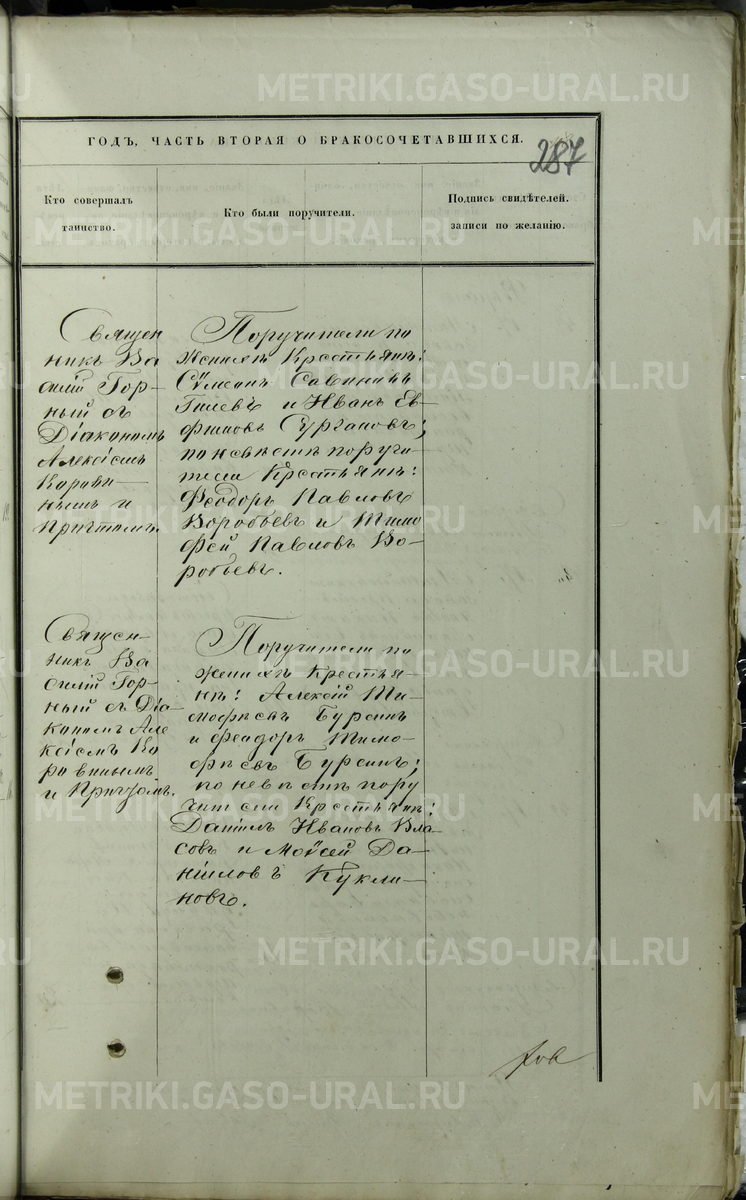 ГОДЪ, ЧАСТЬ ВТОРАЯ О БРАКОСОЧЕТАВШИХСЯ.
287
Кто совершалъ
таинство.
Кто были поручители.
Подпись свидѣтелей.
записи по желанію.
Священ
никъ Ва
силій Гор-
ный съ
Діакономъ
Алексіемъ
нымъ и
Причтомъ.
Поручители по
женихѣ Крестьяне:
Савиновъ
и Иванъ Ев-
фимовъ
по невѣстѣ поручи
тели Крестьяне:
Феодоръ Павловъ
Воробьевъ и Тимо
фей Павловъ Во-
робьевъ.
Священ-
никъ Ва
силій Гор-
ный съ Діа-
кономъ Але
ксіемъ Ко
ровинымъ
и Причтомъ.
Поручители по
женихѣ Крестья-
не: Алексій Ти-
мофѣевъ Бурсинъ
и Феодоръ Тимо-
фѣевъ Бурсинъ;
по невѣстѣ пору
чители Крестьяне:
Даніилъ Ивановъ Вла
совъ и Моѵсей Да-
ніиловъ Кукли-
новъ.
METRIKI.GASO-URAL.RU